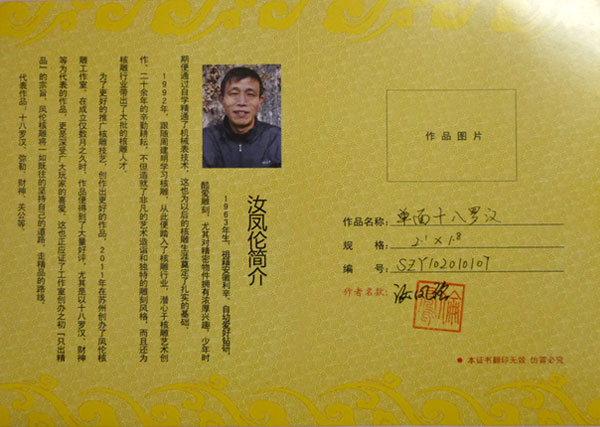 汝凤伦简介
1963年生，祖籍安徽利辛，自幼爱好钻研，
酷爱雕刻，尤其对精密物件拥有浓厚兴趣，少年时
期便通过自学精通了机械表技术，这也为以后的核雕生涯奠定了扎实的基础。
1992年，跟随周建明学习核雕，从此便踏入了核雕行业，潜心于核雕艺术创
作，二十余年的辛勤耕耘，不但造就了非凡的艺术造诣和独特的雕刻风格，而且还为
核雕行业带出了大批的核雕人才。
为了更好的推广核雕技艺，创作出更好的作品，2011年在苏州创办了凤伦核
雕工作室，在成立仅数月之久时，作品便得到了大量好评，尤其是以十八罗汉、财神
等为代表的作品，更是深受广大玩家的喜爱，这也正应证了工作室创办之初「只出精
品」的宗旨，凤伦核雕将一如既往的坚持自己的道路，走精品的路线。
代表作品：十八罗汉、弥勒、财神、关公等。
作品图片
作品名称：单面十八罗汉
规 格：2.1×1.8
编 号：SZY102010107
作者名款：汝凤伦
● 本证书翻印无效 仿冒必究